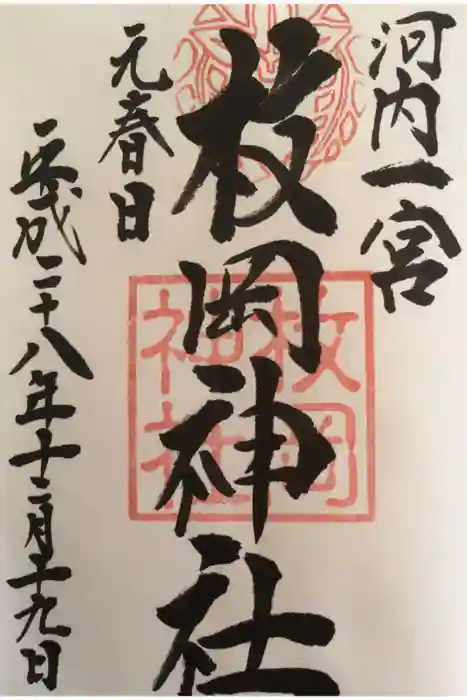 河内一宮
枚岡神社
元春日
平成二十八年十二月二十九日
枚岡
神社